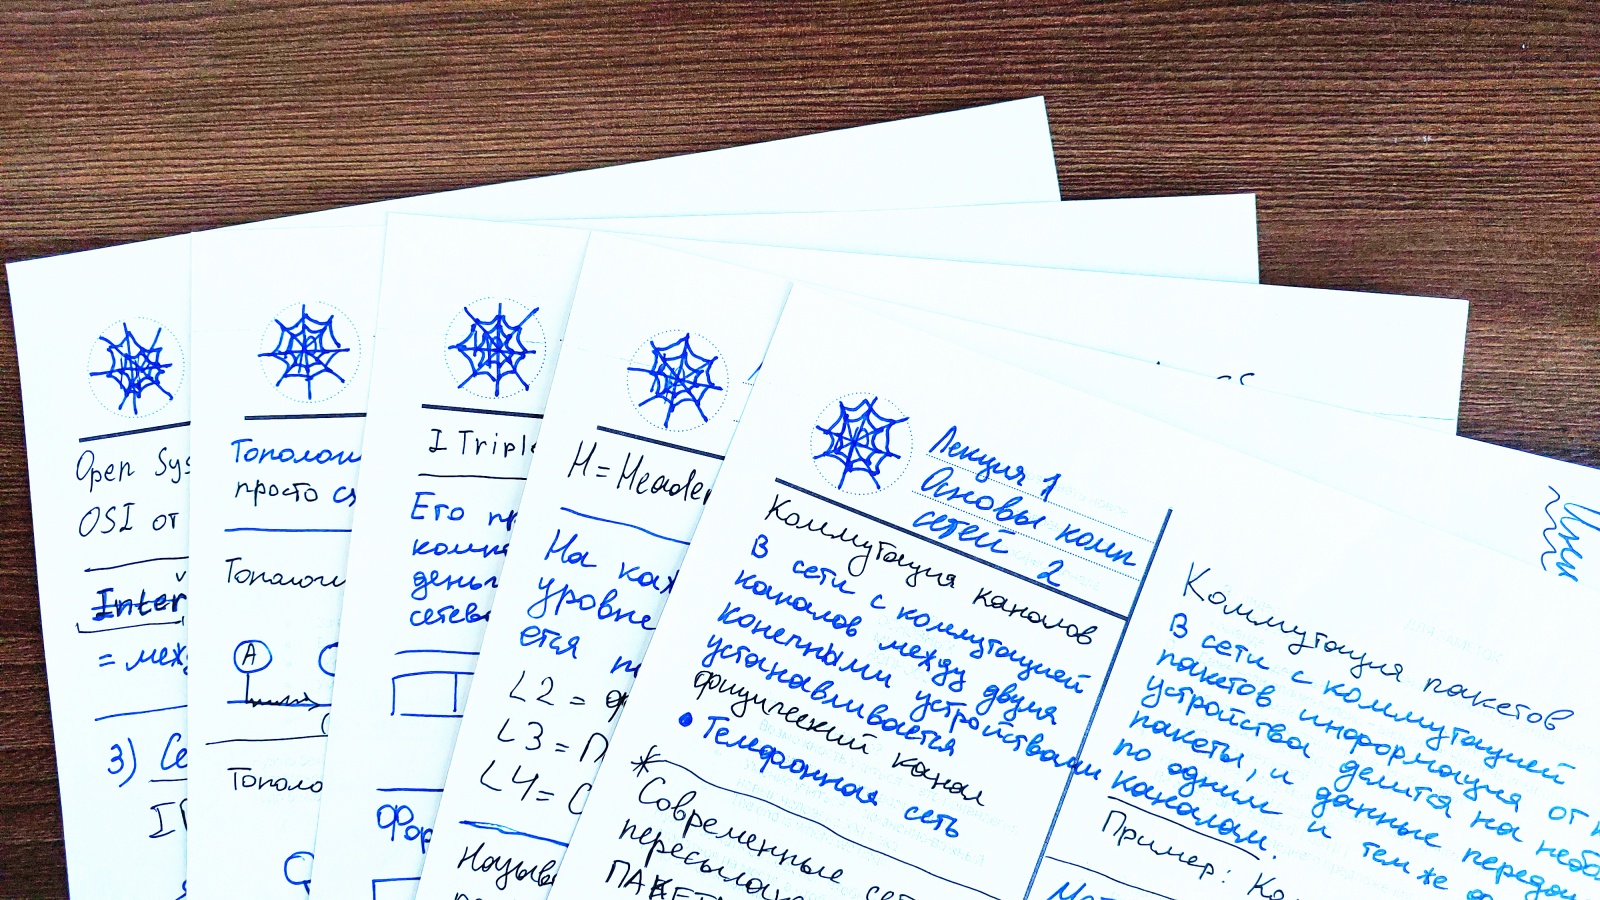 Open Sys
OSI от
Inter
= меж
3) Се
Топологи
просто с
Топологи
A
Тополо
I Triple
Его пр
компа
деньг
сетев
Фор
H = Header
На каж
уровне
ется п
L2 = ф
L3 = П
L4 = С
Назыв
Лекция 1
Основы комп
сетей 2
Коммутация каналов
В сети с коммутацией
каналов между двумя
конечными устройствами
устанавливается
физический канал
• Телефонная сеть
* Современные сет
пересылаю
ПАКЕТ
Коммутация пакетов
В сети с коммутацией
пакетов информация от
устройства делится на небо
пакеты, и данные передаю
по одним и тем же
каналам.
Пример: Ко